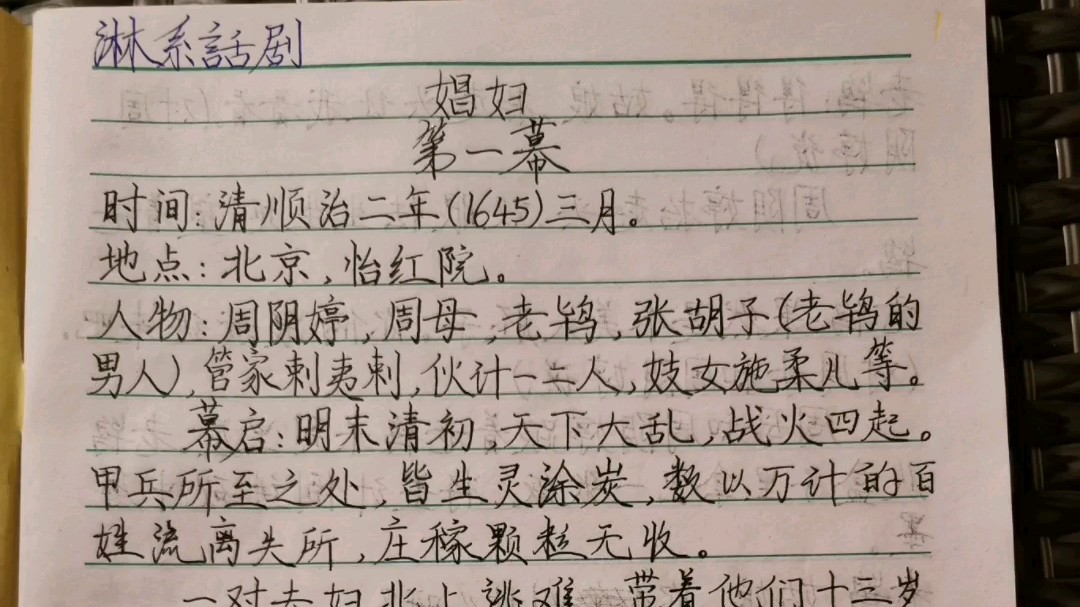 淋系話剧
娼妇
第一幕
时间:清顺治二年(1645)三月。
地点:北京,怡红院。
人物:周阴婷,周母,老鸨,张胡子(老鸨的
男人),管家刺夷刺,伙计一二人,妓女施柔儿等。
幕启:明末清初,天下大乱,战火四起。
甲兵所至之处,皆生灵涂炭,数以万计的百
姓流离失所,庄稼颗粒无收。
一对夫妇北上逃难,带着他们十三岁